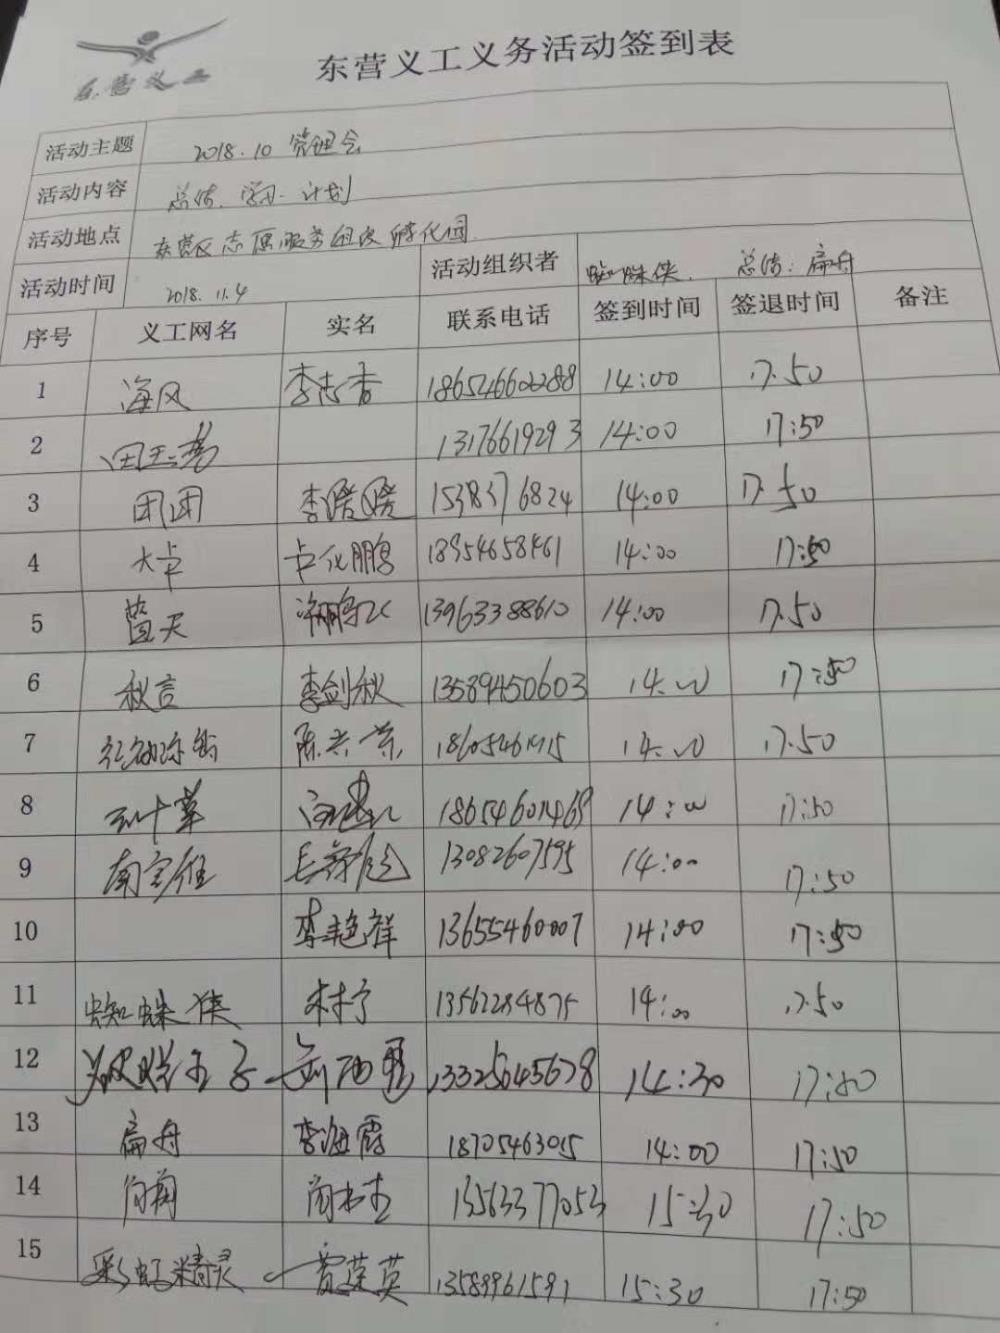 东营义工
东营义工义务活动签到表
活动主题 2018.10 管组会
活动内容 总结、学习、计划
活动地点 东营区志愿服务组织孵化园
活动时间 2018.11.4 活动组织者 蜘蛛侠 总结：扁舟
序号 义工网名 实名 联系电话 签到时间 签退时间 备注
1 海风 李志香 18654660288 14:00 17.50
2 13176619293 14:00 17:50
3 团团 李媛媛 15383776824 14:00 17.50
4 大卓 卢化鹏 18954658461 14:00 17:50
5 蓝天 13963388610 14:00 17.50
6 秋言 李剑秋 13589450603 14:00 17:50
7 陈兰芳 14:00 17.50
8 18654601469 14:00 17:50
9 13082607595 14:00 17:50
10 李艳祥 13655460007 14:00 17:50
11 蜘蛛侠 林宁 13562284875 14:00 17.50
12 13325645678 14:30 17:50
13 扁舟 李海霞 18705463015 14:00 17:50
14 13563377053 15:30 17:50
15 彩虹精灵 贾莲英 13589961591 15:30 17:50